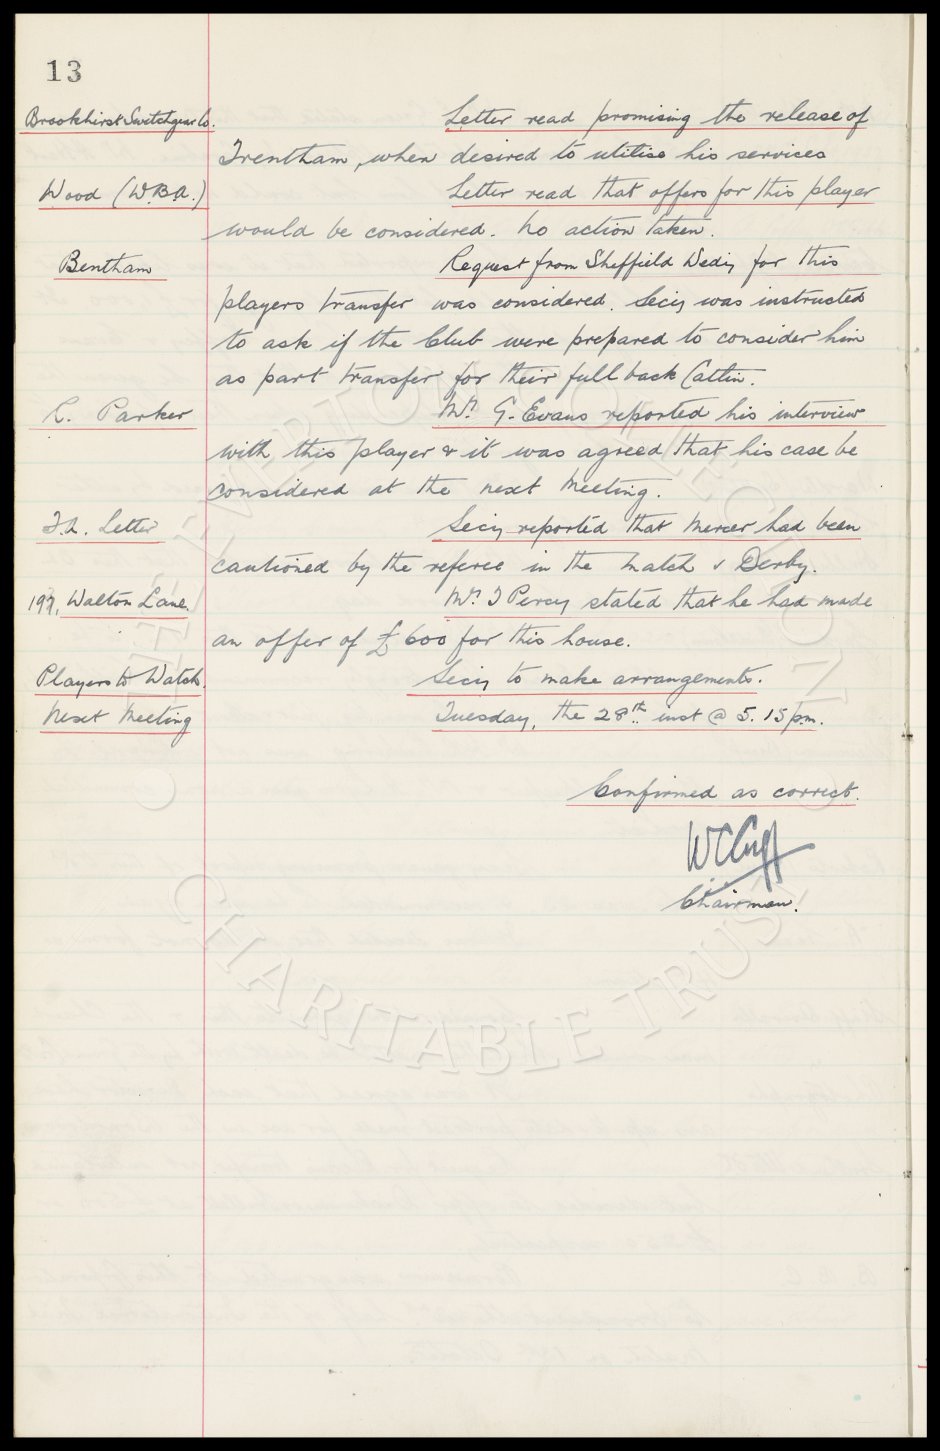 13
Brookhirst Switchgear Co. Letter read promising the release of
Trentham, when desired to utilise his services
Wood (W.B.A.) Letter read that offers for this player
would be considered. No action taken.
Bentham Request from Sheffield Wedy for this
players transfer was considered. Secy was instructed
to ask if the Club were prepared to consider him
as part transfer for their full back Catlin.
R. Parker Mr. G. Evans reported his interview
with this player & it was agreed that his case be
considered at the next Meeting.
F.L. Letter Secy reported that Mercer had been
cautioned by the referee in the match v Derby.
197, Walton Lane. Mr. T Percy stated that he had made
an offer of £600 for this house.
Players to Watch. Secy to make arrangements.
Next Meeting Tuesday, the 28th inst @ 5.15 p.m.
Confirmed as correct.
W C Cuff
Chairman.
THE EVERTON COLLECTION
CHARITABLE TRUST